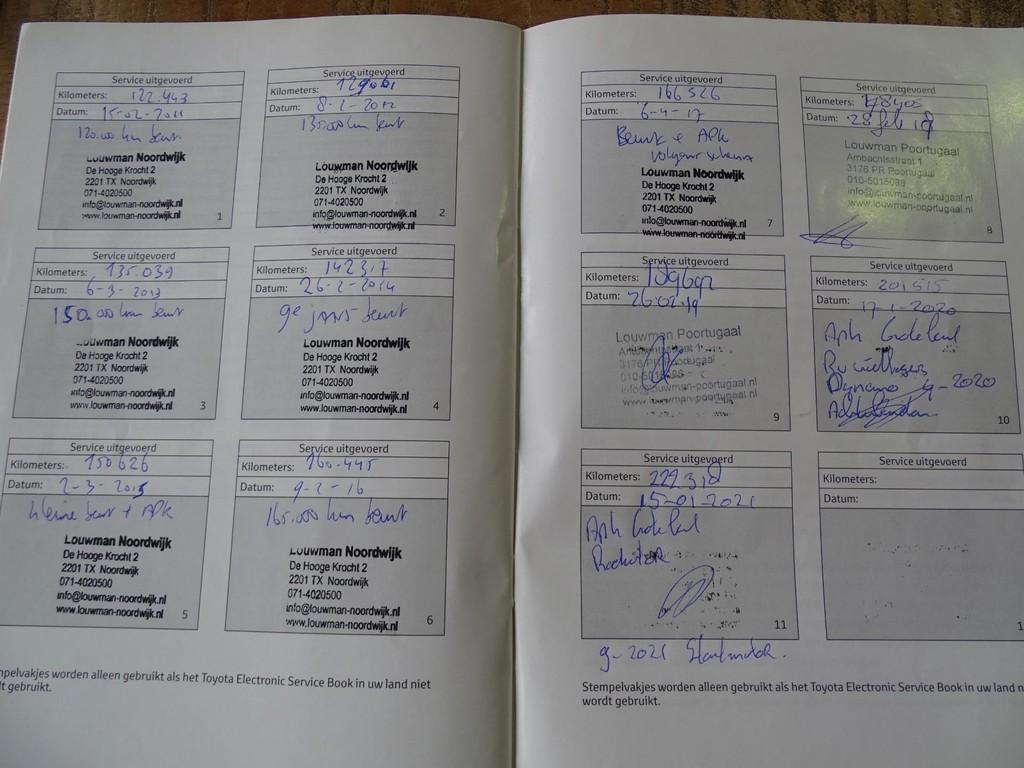 Service uitgevoerd
Kilometers: 122.943
Datum: 15-02-2011
120.000 km beurt
Louwman Noordwijk
De Hooge Krocht 2
2201 TX Noordwijk
071-4020500
info@louwman-noordwijk.nl
www.louwman-noordwijk.nl
1
Service uitgevoerd
Kilometers: 129061
Datum: 8-2-2012
135000 km beurt
Louwman Noordwijk
De Hooge Krocht 2
2201 TX Noordwijk
071-4020500
info@louwman-noordwijk.nl
www.louwman-noordwijk.nl
2
Service uitgevoerd
Kilometers: 135.039
Datum: 6-3-2013
150.000 km beurt
Louwman Noordwijk
De Hooge Krocht 2
2201 TX Noordwijk
071-4020500
info@louwman-noordwijk.nl
www.louwman-noordwijk.nl
3
Service uitgevoerd
Kilometers: 142317
Datum: 26-2-2014
9e jaars beurt
Louwman Noordwijk
De Hooge Krocht 2
2201 TX Noordwijk
071-4020500
info@louwman-noordwijk.nl
www.louwman-noordwijk.nl
4
Service uitgevoerd
Kilometers: 150626
Datum: 2-3-2015
kleine beurt + APK
Louwman Noordwijk
De Hooge Krocht 2
2201 TX Noordwijk
071-4020500
info@louwman-noordwijk.nl
www.louwman-noordwijk.nl
5
Service uitgevoerd
Kilometers: 160.445
Datum: 9-2-16
165.000 km beurt
Louwman Noordwijk
De Hooge Krocht 2
2201 TX Noordwijk
071-4020500
info@louwman-noordwijk.nl
www.louwman-noordwijk.nl
6
mpelvakjes worden alleen gebruikt als het Toyota Electronic Service Book in uw land niet
dt gebruikt.
Service uitgevoerd
Kilometers: 166526
Datum: 6-4-17
Beurt + APK
volgens schema
Louwman Noordwijk
De Hooge Krocht 2
2201 TX Noordwijk
071-4020500
info@louwman-noordwijk.nl
www.louwman-noordwijk.nl
7
Service uitgevoerd
Kilometers: 178400
Datum: 28 feb 18
Louwman Poortugaal
Ambachtsstraat 1
3176 PR Poortugaal
010-5015088
info@louwman-poortugaal.nl
www.louwman-poortugaal.nl
8
Service uitgevoerd
Kilometers: 189692
Datum: 26.02.19
Louwman Poortugaal
Ambachtsstraat 1
3176 PR Poortugaal
info@louwman-poortugaal.nl
www.louwman-poortugaal.nl
9
Service uitgevoerd
Kilometers: 201515
Datum: 17-1-2020
Apk
Dynamo 9-2020
10
Service uitgevoerd
Kilometers: 222318
Datum: 15-01-2021
Apk
11
9-2021 Startmotor.
Service uitgevoerd
Kilometers:
Datum:
1
Stempelvakjes worden alleen gebruikt als het Toyota Electronic Service Book in uw land n
wordt gebruikt.